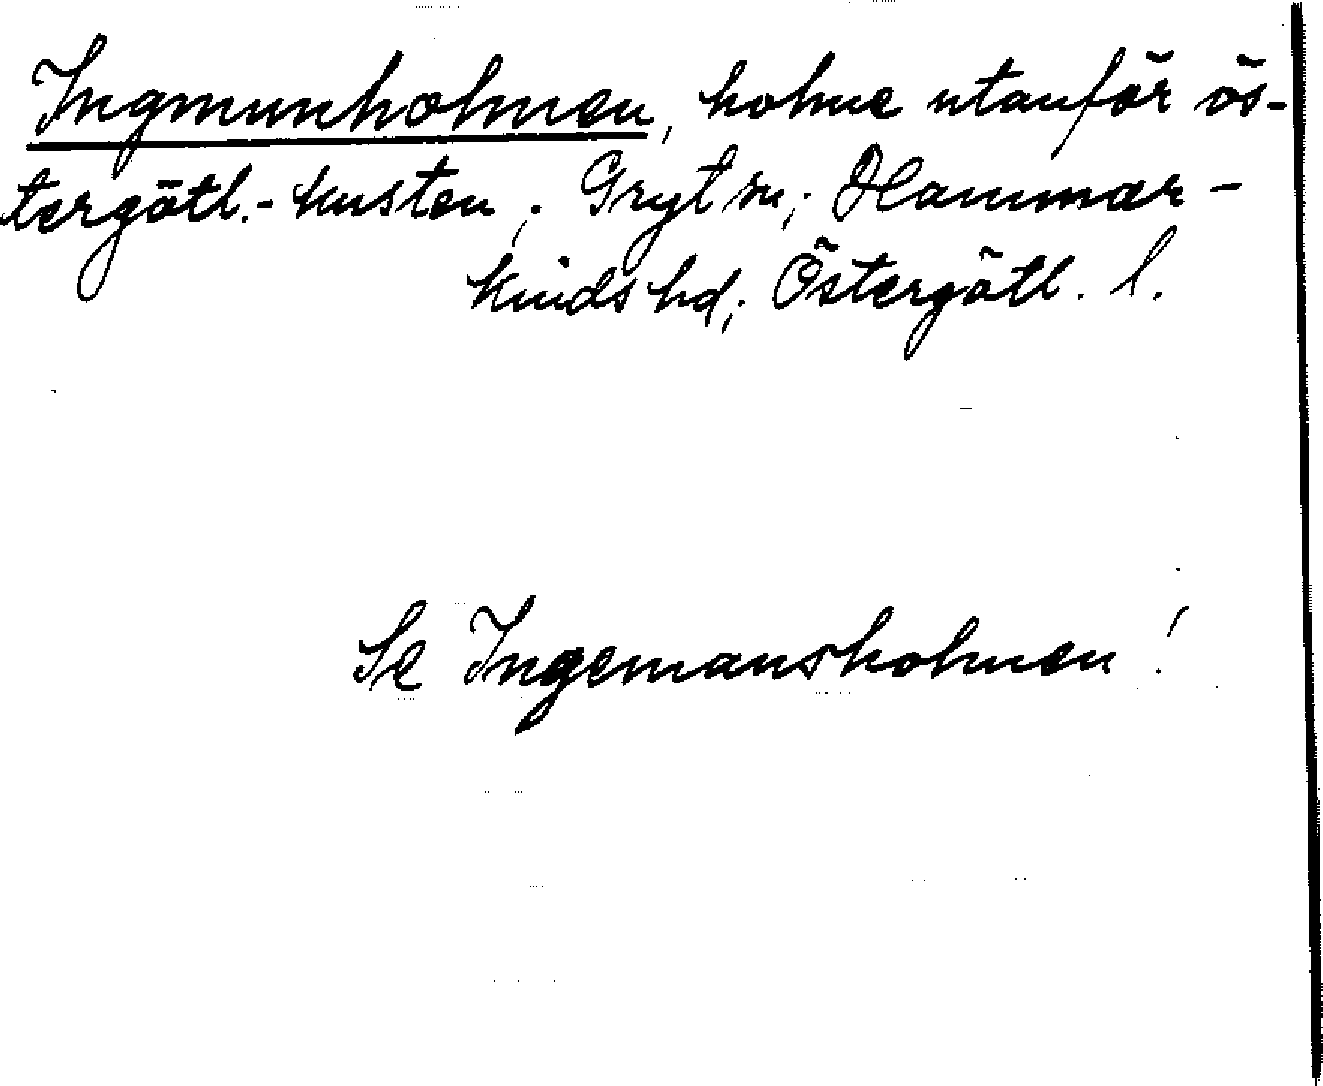 Ingmunholmen, holme utanför ös-
tergötl.-kusten. Gryt sn; Hammar-
kinds hd; Östergötl. l.
Se Ingemansholmen!